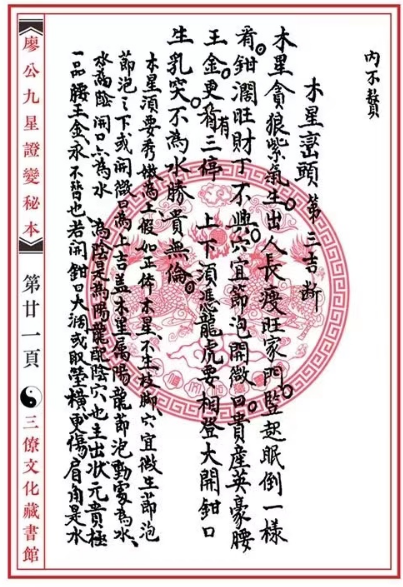 内不贅
木星巒頭 第三吉断
木星貪狼紫氣生出人長瘦旺家門豎起眠倒一樣
看鉗濶旺財丁不興穴宜節泡開微口貴産英豪腰
王金更有三停 上下須憑龍虎要相登大開鉗口
生乳突不為水勝貴無倫
木星須要秀嫩為上假如正体木星不生枝脚穴宜微生節泡
節泡之下或開微口為上吉蓋木星属陽龍節泡動處為水
水為陰開口六為水 為陰是為陽龍配陰穴也主出状元貴極
一品腰王金永不皆也若開鉗口大濶或取塋橫更傷眉角是水
廖公九星證變秘本 第廿一頁 三僚文化藏書館